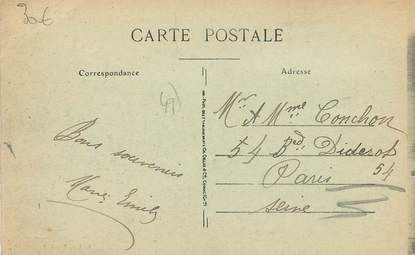 30€
CARTE POSTALE
Correspondance
Adresse
49
Bons souvenirs
Marie Emile
Mr & Mme Conchon
54 Bed Diderot
Paris 54
Seine